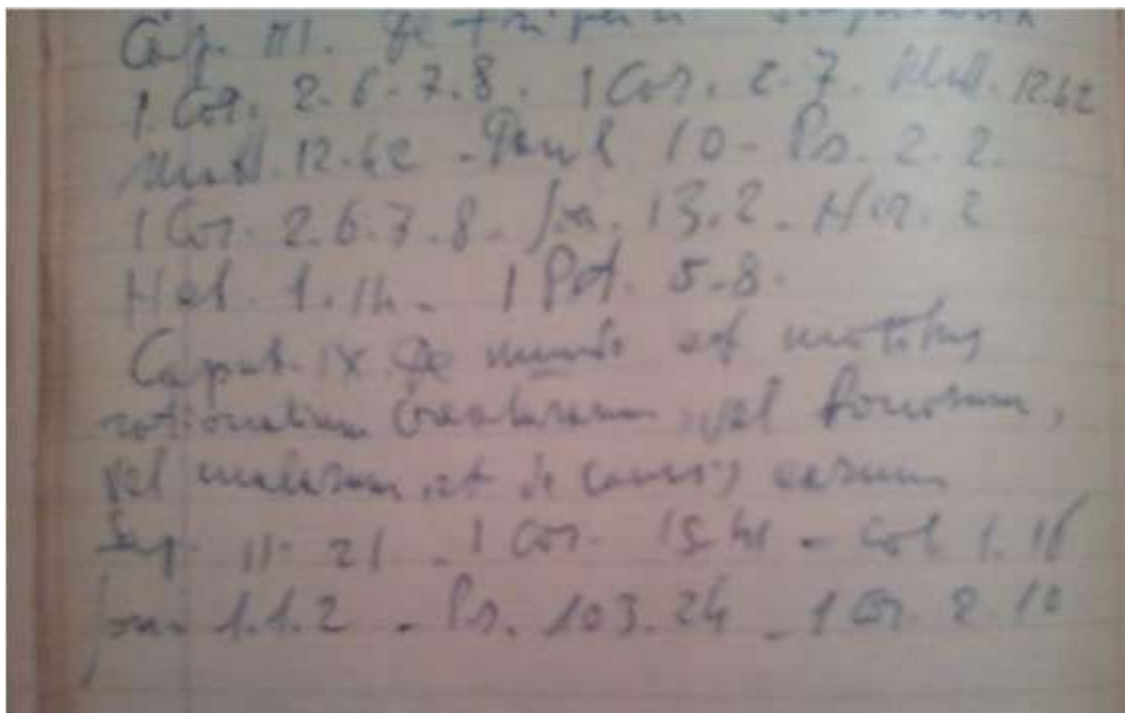 Cap. III. De triplici sapientia
1. Cor. 2.6.7.8. 1 Cor. 2.7. Matt. 12.42
Matt. 12.42 - Danl 10 - Ps. 2.2.
1 Cor. 2.6.7.8 - Joa. 13.2 - Hier. 2
Heb. 1.14 - 1 Pet. 5.8.
Caput. IX De mundo et motibus
rationalium creaturarum, vel bonorum,
vel malarum, et de causis earum
Sap. 11.21 - 1 Cor. 15.41 - Col 1.16
Joa. 1.1.2 - Ps. 103.24 - 1 Cor. 2.10